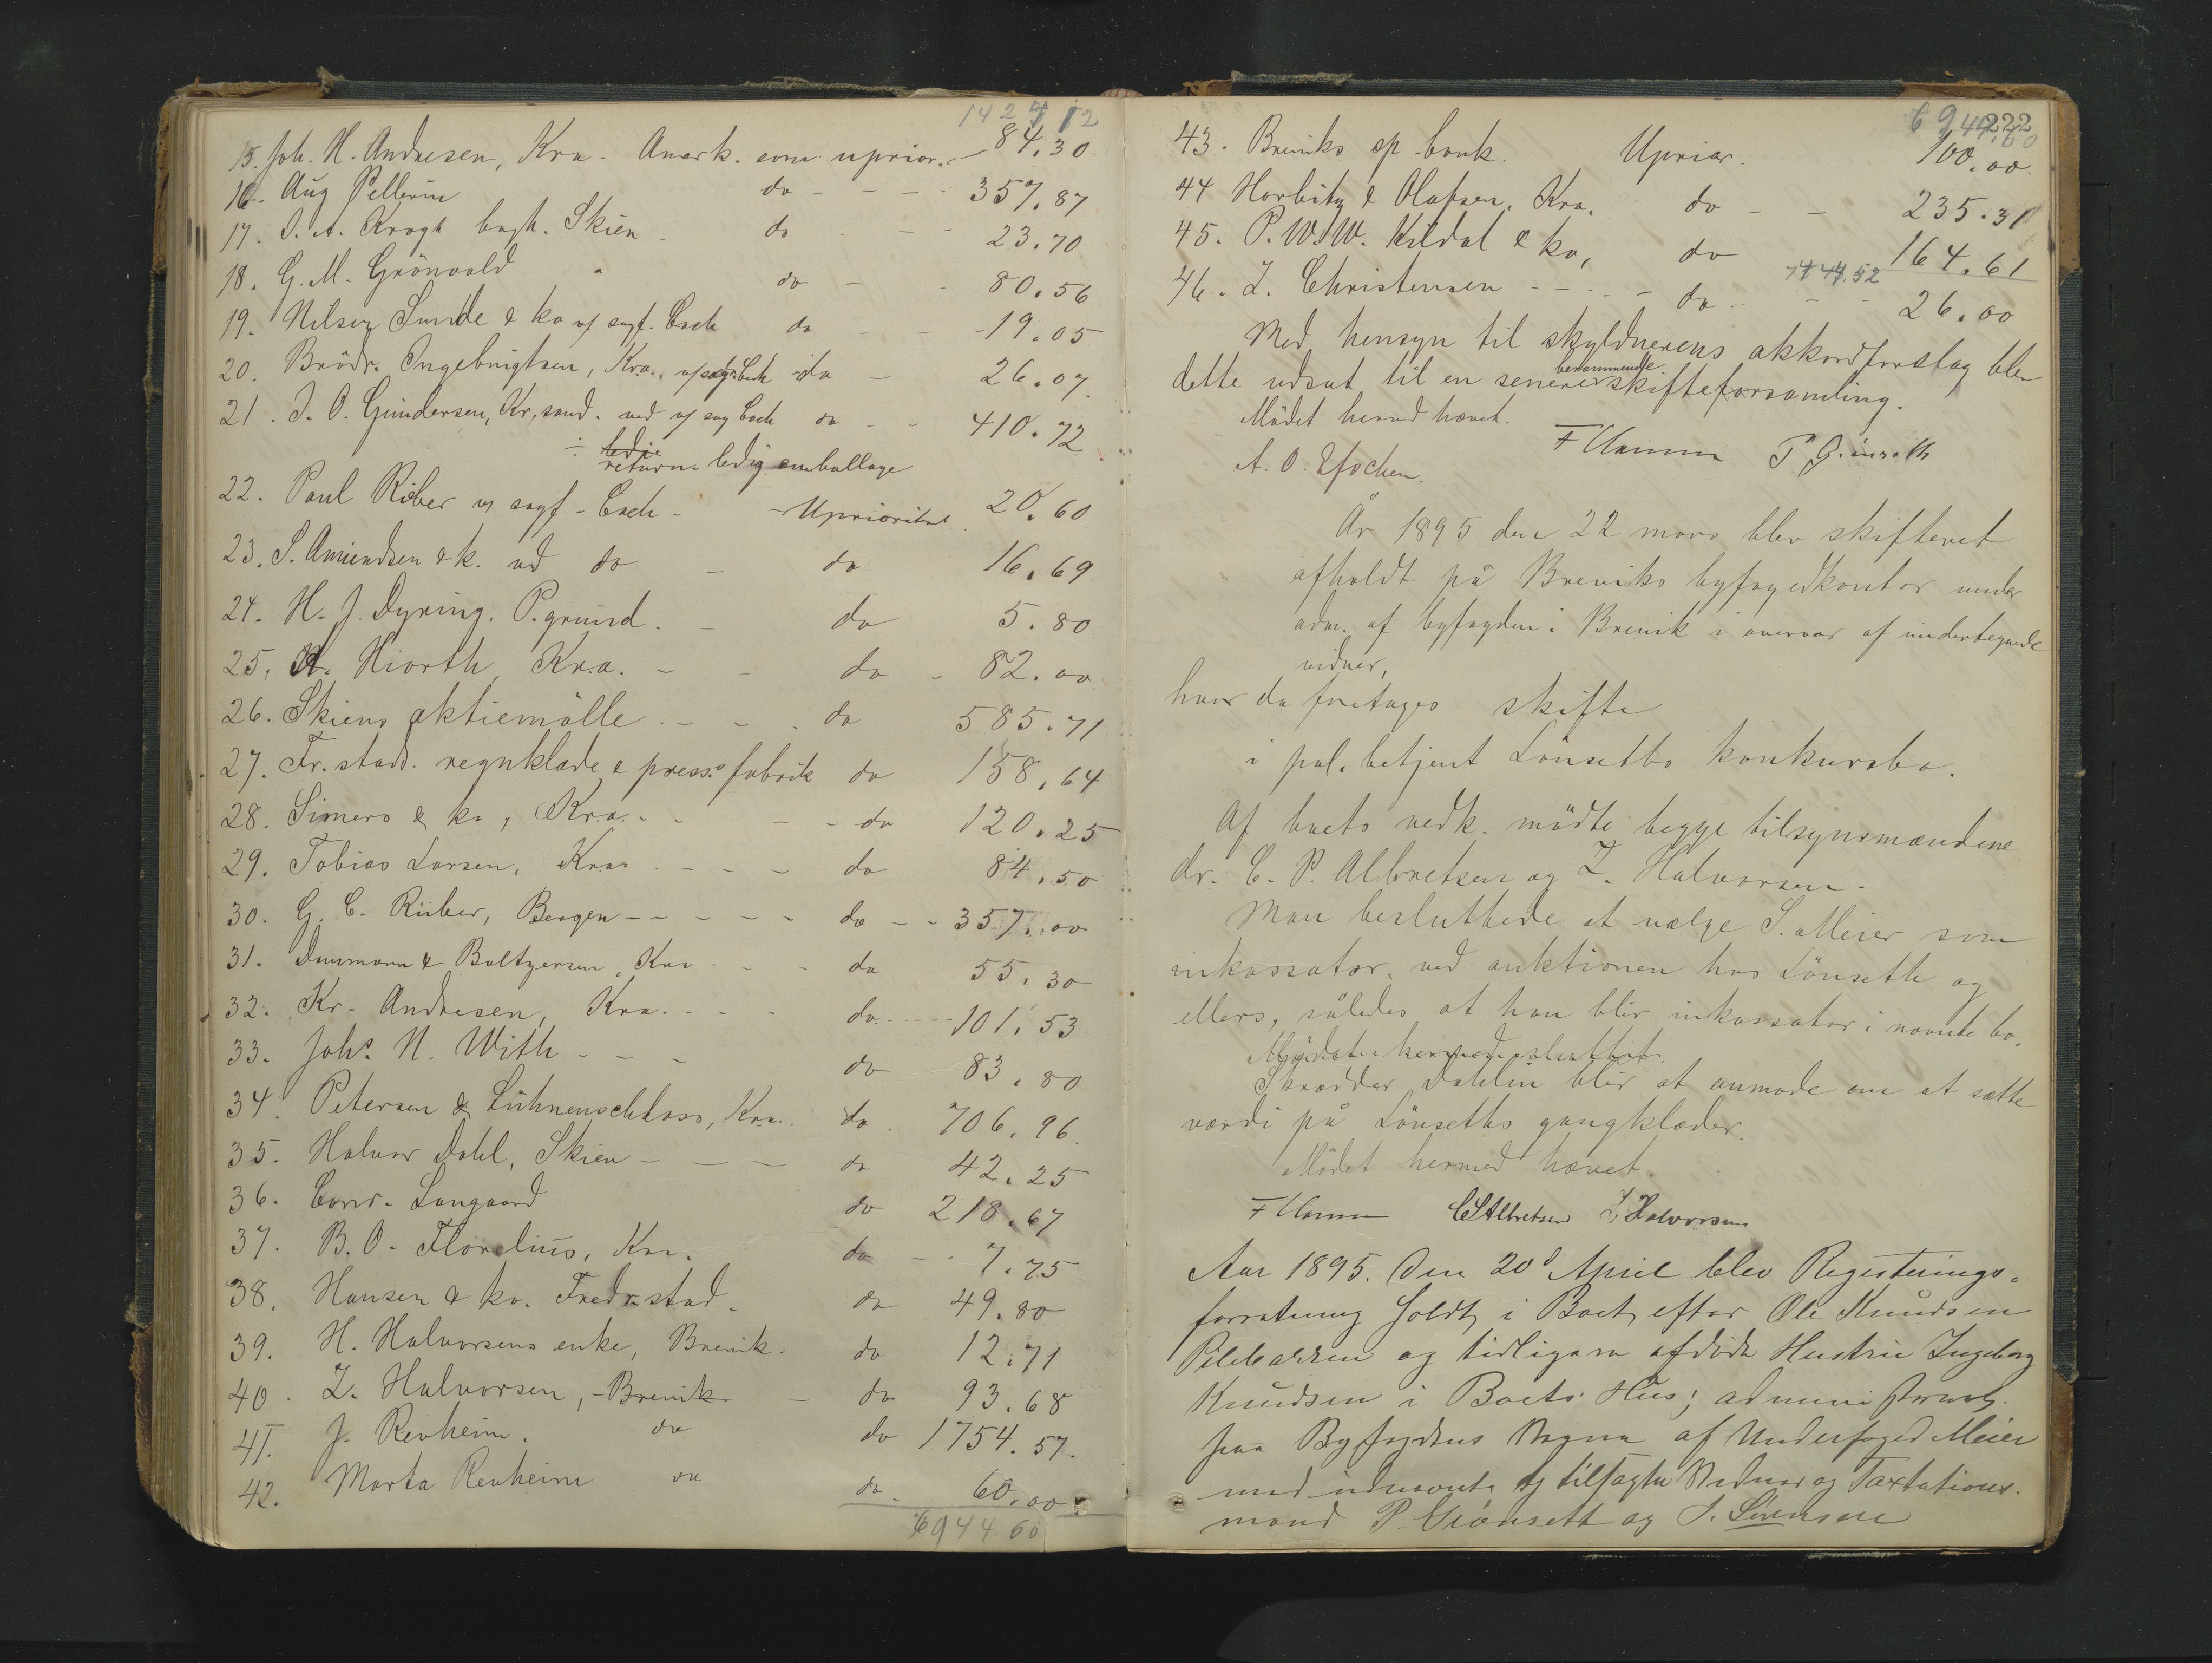 1427 12
15. Joh. H. Andresen, Kra. Anerk. som uprior. 84.30
16. Aug Pellerin do - - - 357.87
17. I. A. Krogh bagh. Skien do - - 23.70
18. G. M. Grönvold " do - 80.56
19. Nilsen Sunde & ko v/ sagf. Bach do - - 19.05
20. Brödr. Ingebrigtsen, Kra. v/ sagf. Bach do - 26.07
21. J. O. Gundersen, Kr.sand. ved v/ sag Bach do - - 410.72
÷ return. ledig emballage
22. Paul Riber v/ sagf. Bach - Uprioritet 20.60
23. S. Amundsen & k. ved do - do 16.69
24. H. J. Dyring. P.grund. - do 5.80
25. A. Hiorth, Kra. - - do - 82.00
26. Skiens aktiemölle - - . do 585.71
27. Fr.stad. regnklæde & press. fabrik do 158.64
28. Simers & ko, Kra. - - - do 120.25
29. Tobias Larsen, Kra - - - do 84.50
30. G. C. Riiber, Bergen - - - - - do - - 357.00
31. Danmann & Baltzersen, Kra - - do 55.30
32. Kr. Andresen, Kra. - - - do - - - 101.53
33. Johs. N. With - - - do 83.80
34. Petersen & Lühnenschloss, Kra. do 706.96
35. Halvor Dahl, Skien - - - do 42.25
36. Conr. Langaard do 218.67
37. B. O. Florelius, Kra. do - - 7.75
38. Hansen & ko. Fredr.stad. do 49.80
39. H. Halvorsens enke, Brevik. do 12.71
40. Z. Halvorsen, - Brevik - do 93.68
41. J. Revheim. do do 1754.57
42. Marta Revheim do do - 60.00
6944.60
6944.60
222
43. Breviks sp. bank. Uprior. 100.00
44 Horbitz & Olafsen. Kra. do - - 235.31
45. P. W. W. Kildal & ko, do 164.61
7444.52
46. Z. Christensen - - - - do - - 26.00
Med hensyn til skyldnerens akkordforslag blev
berammende
dette udsat til en senere skifteforsamling.
Mödet herved hævet.
A. O. F Hamm P Grönseth
År 1895 den 22 mars blev skifteret
afholdt på Breviks byfogedkontor under
adm. af byfogden i Brevik i overvær af undertegnede
vidner,
hvor da foretages skifte
i pol. betjent Lönseths konkursbo.
Af boets vedk. mödte begge tilsynsmændene
dr. C. P. Albretsen og Z. Halvorsen.
Man besluttede at vælge S. Meier som
inkassator ved auktionen hos Lönseth og
ellers, således at han blir inkassator i nævnte bo.
Mödet hermed sluttet.
Skrædder Dahlin blir at anmode om at sætte
værdi på Lönseths gangklæder.
Mödet hermed hævet.
F Hamm CPAlbretsen Z. Halvorsen
Aar 1895. Den 20d April blev Registerings-
forretning holdt i Boet efter Ole Knudsen
og tidligere afdöde Hustru Ingeborg
Knudsen i Boets Hus; administreret
paa Byfogdens Vegne af Underfoged Meier
med nævnte og tilsagte Vidner og Taxtations-
mænd P Grönseth og J. Sörensen